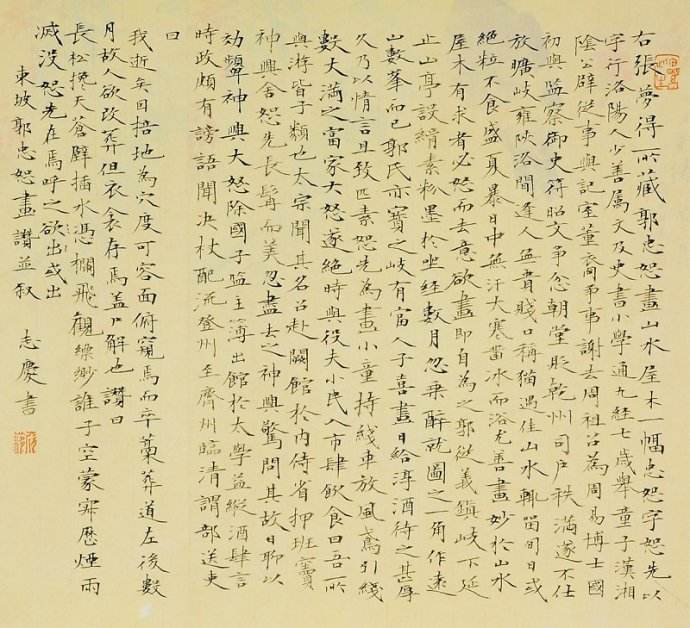 右張夢得所藏郭忠恕畫山水屋木一幅忠恕字恕先以
字行洛陽人少善屬文及史書小學通九經七歲舉童子漢湘
陰公辟從事與記室董裔爭事謝去周祖召為周易博士國
初與監察御史符昭文爭忿朝堂貶乾州司戶秩滿遂不仕
放曠岐雍陝洛間逢人無貴賤口稱猫遇佳山水輒留旬日或
絕粒不食盛夏暴日中無汗大寒鑿冰而浴尤善畫妙於山水
屋木有求者必怒而去意欲畫即自為之郭從義鎮岐下延
止山亭設絹素粉墨於坐經數月忽乘醉就圖之一角作遠
山數峯而已郭氏亦寶之岐有富人子喜畫日給淳酒待之甚厚
久乃以情言且致匹素恕先為畫小童持綫車放風鳶引綫
數丈滿之富家大怒遂絕時與役夫小民入市肆飲食曰吾所
與游皆子類也太宗聞其名召赴闕館於內侍省押班竇
神興舍恕先長髯而美忽盡去之神興驚問其故曰聊以
効顰神興大怒除國子監主簿出館於太學益縱酒肆言
時政頗有謗語聞決杖配流登州至齊州臨清謂部送吏
曰
我逝矣因掊地為穴度可容面俯窺焉而卒藁葬道左後數
月故人欲改葬但衣衾存焉蓋尸解也讚曰
長松攙天蒼壁插水憑欄飛觀縹緲誰子空蒙寂歷煙雨
滅沒恕先在焉呼之欲出或出
東坡郭忠恕畫讚並叙
志慶書